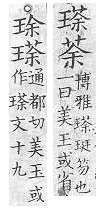 瑹荼
博雅瑹珽笏也
一曰美玉或省
㻌瑹
通都切美玉或
作瑹文十九